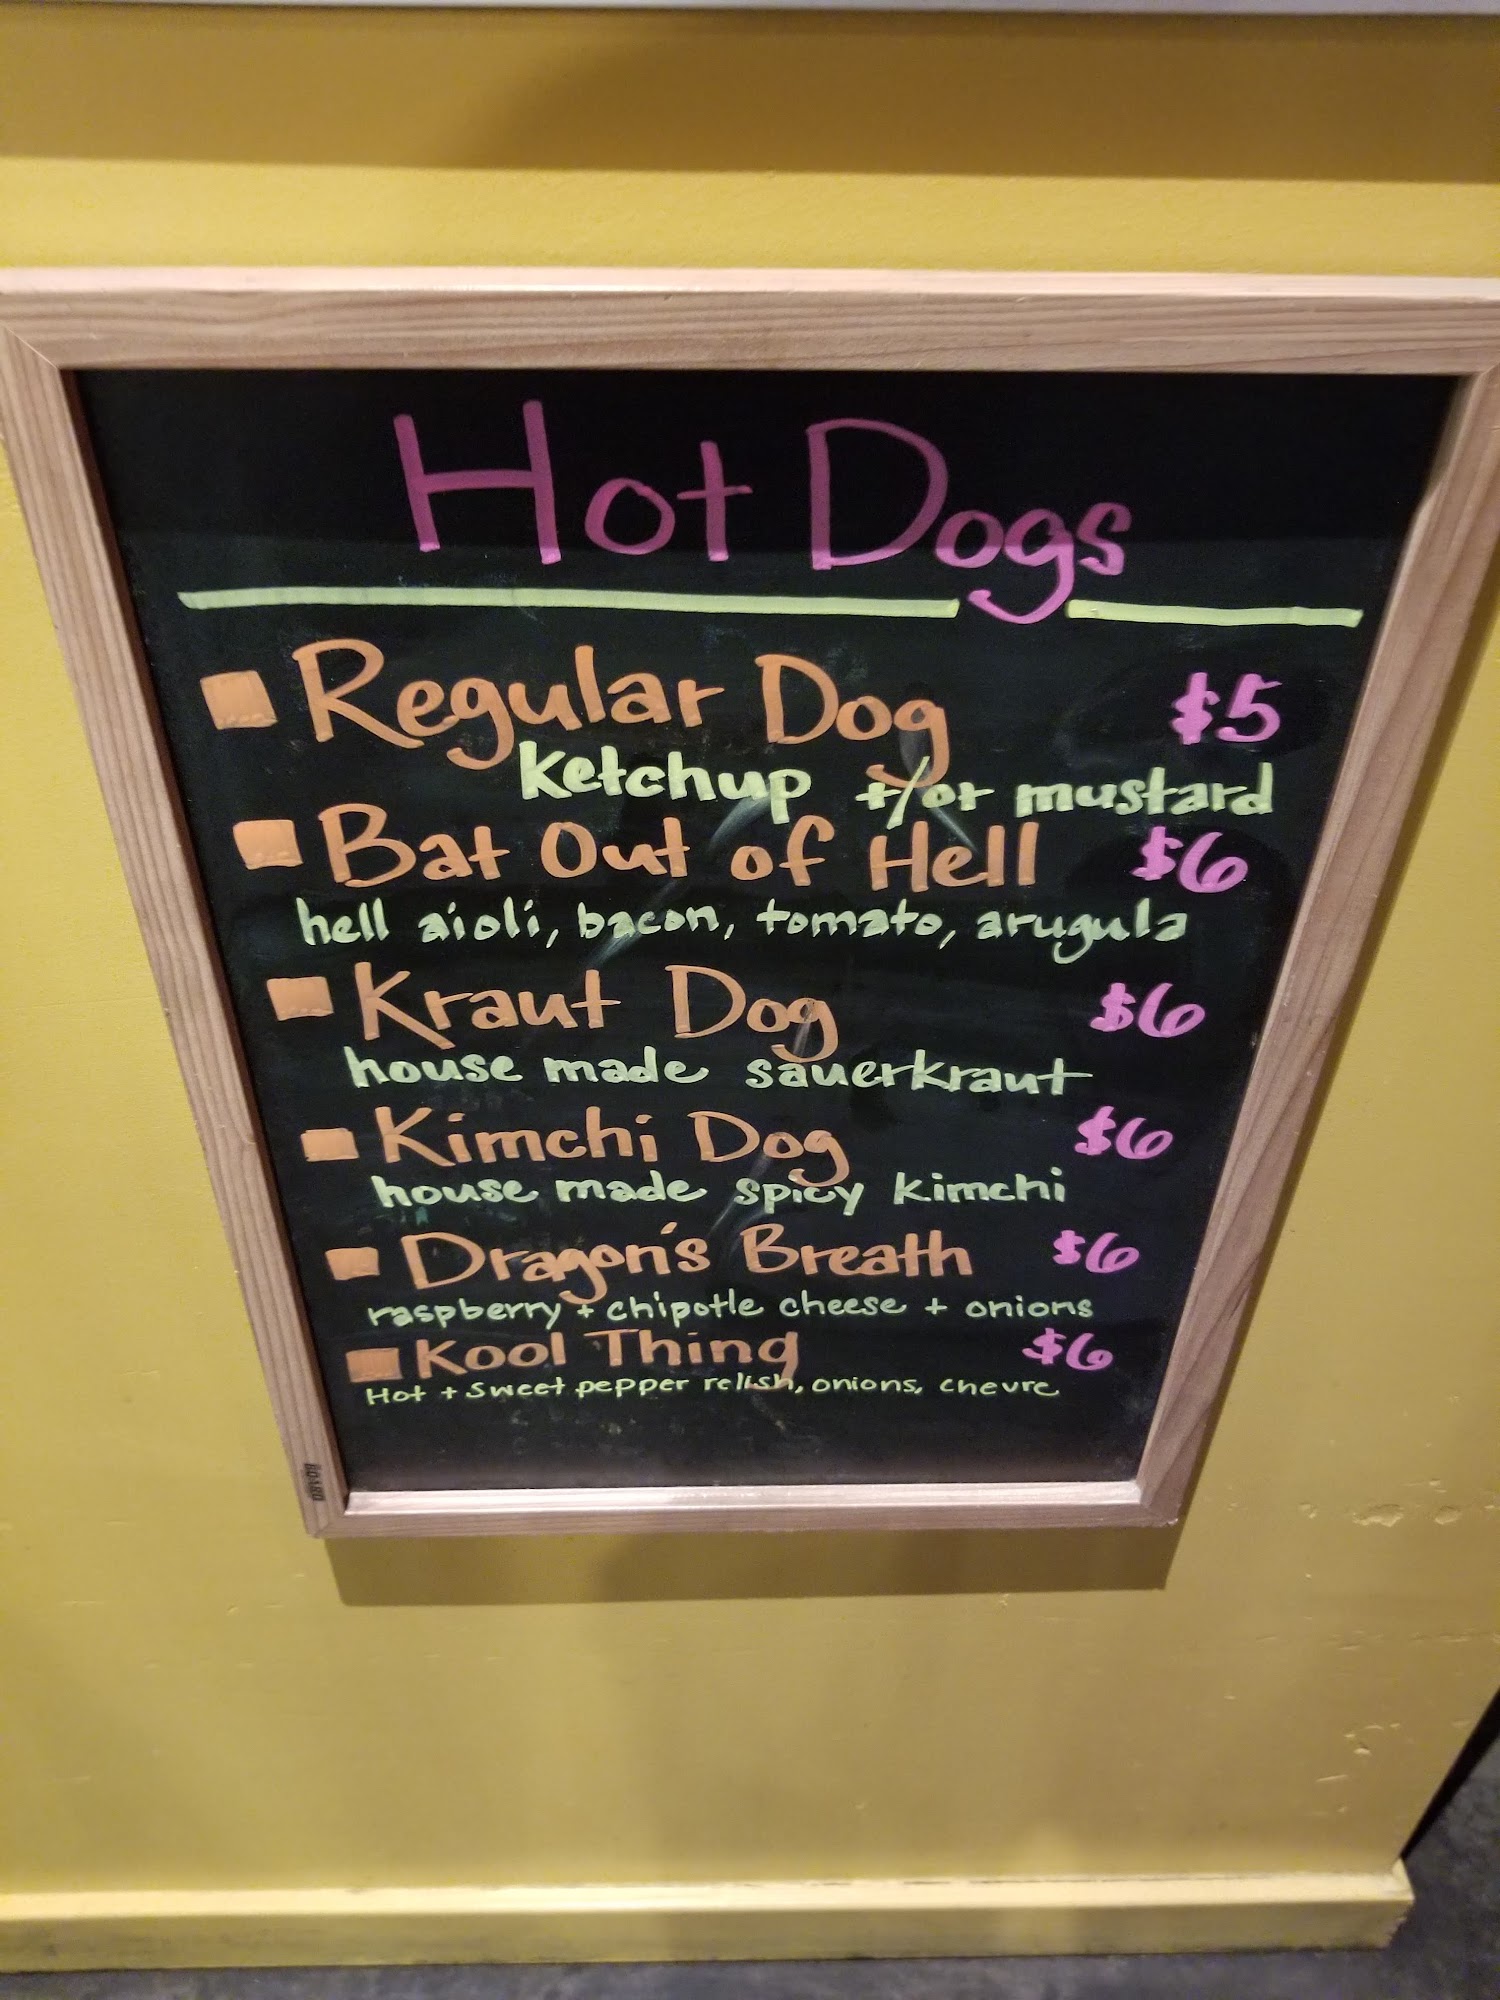 Hot Dogs
Regular Dog $5
Ketchup +/or mustard
Bat Out of Hell $6
hell aioli, bacon, tomato, arugula
Kraut Dog $6
house made sauerkraut
Kimchi Dog $6
house made spicy kimchi
Dragon's Breath $6
raspberry + chipotle cheese + onions
Kool Thing $6
Hot + Sweet pepper relish, onions, chevre